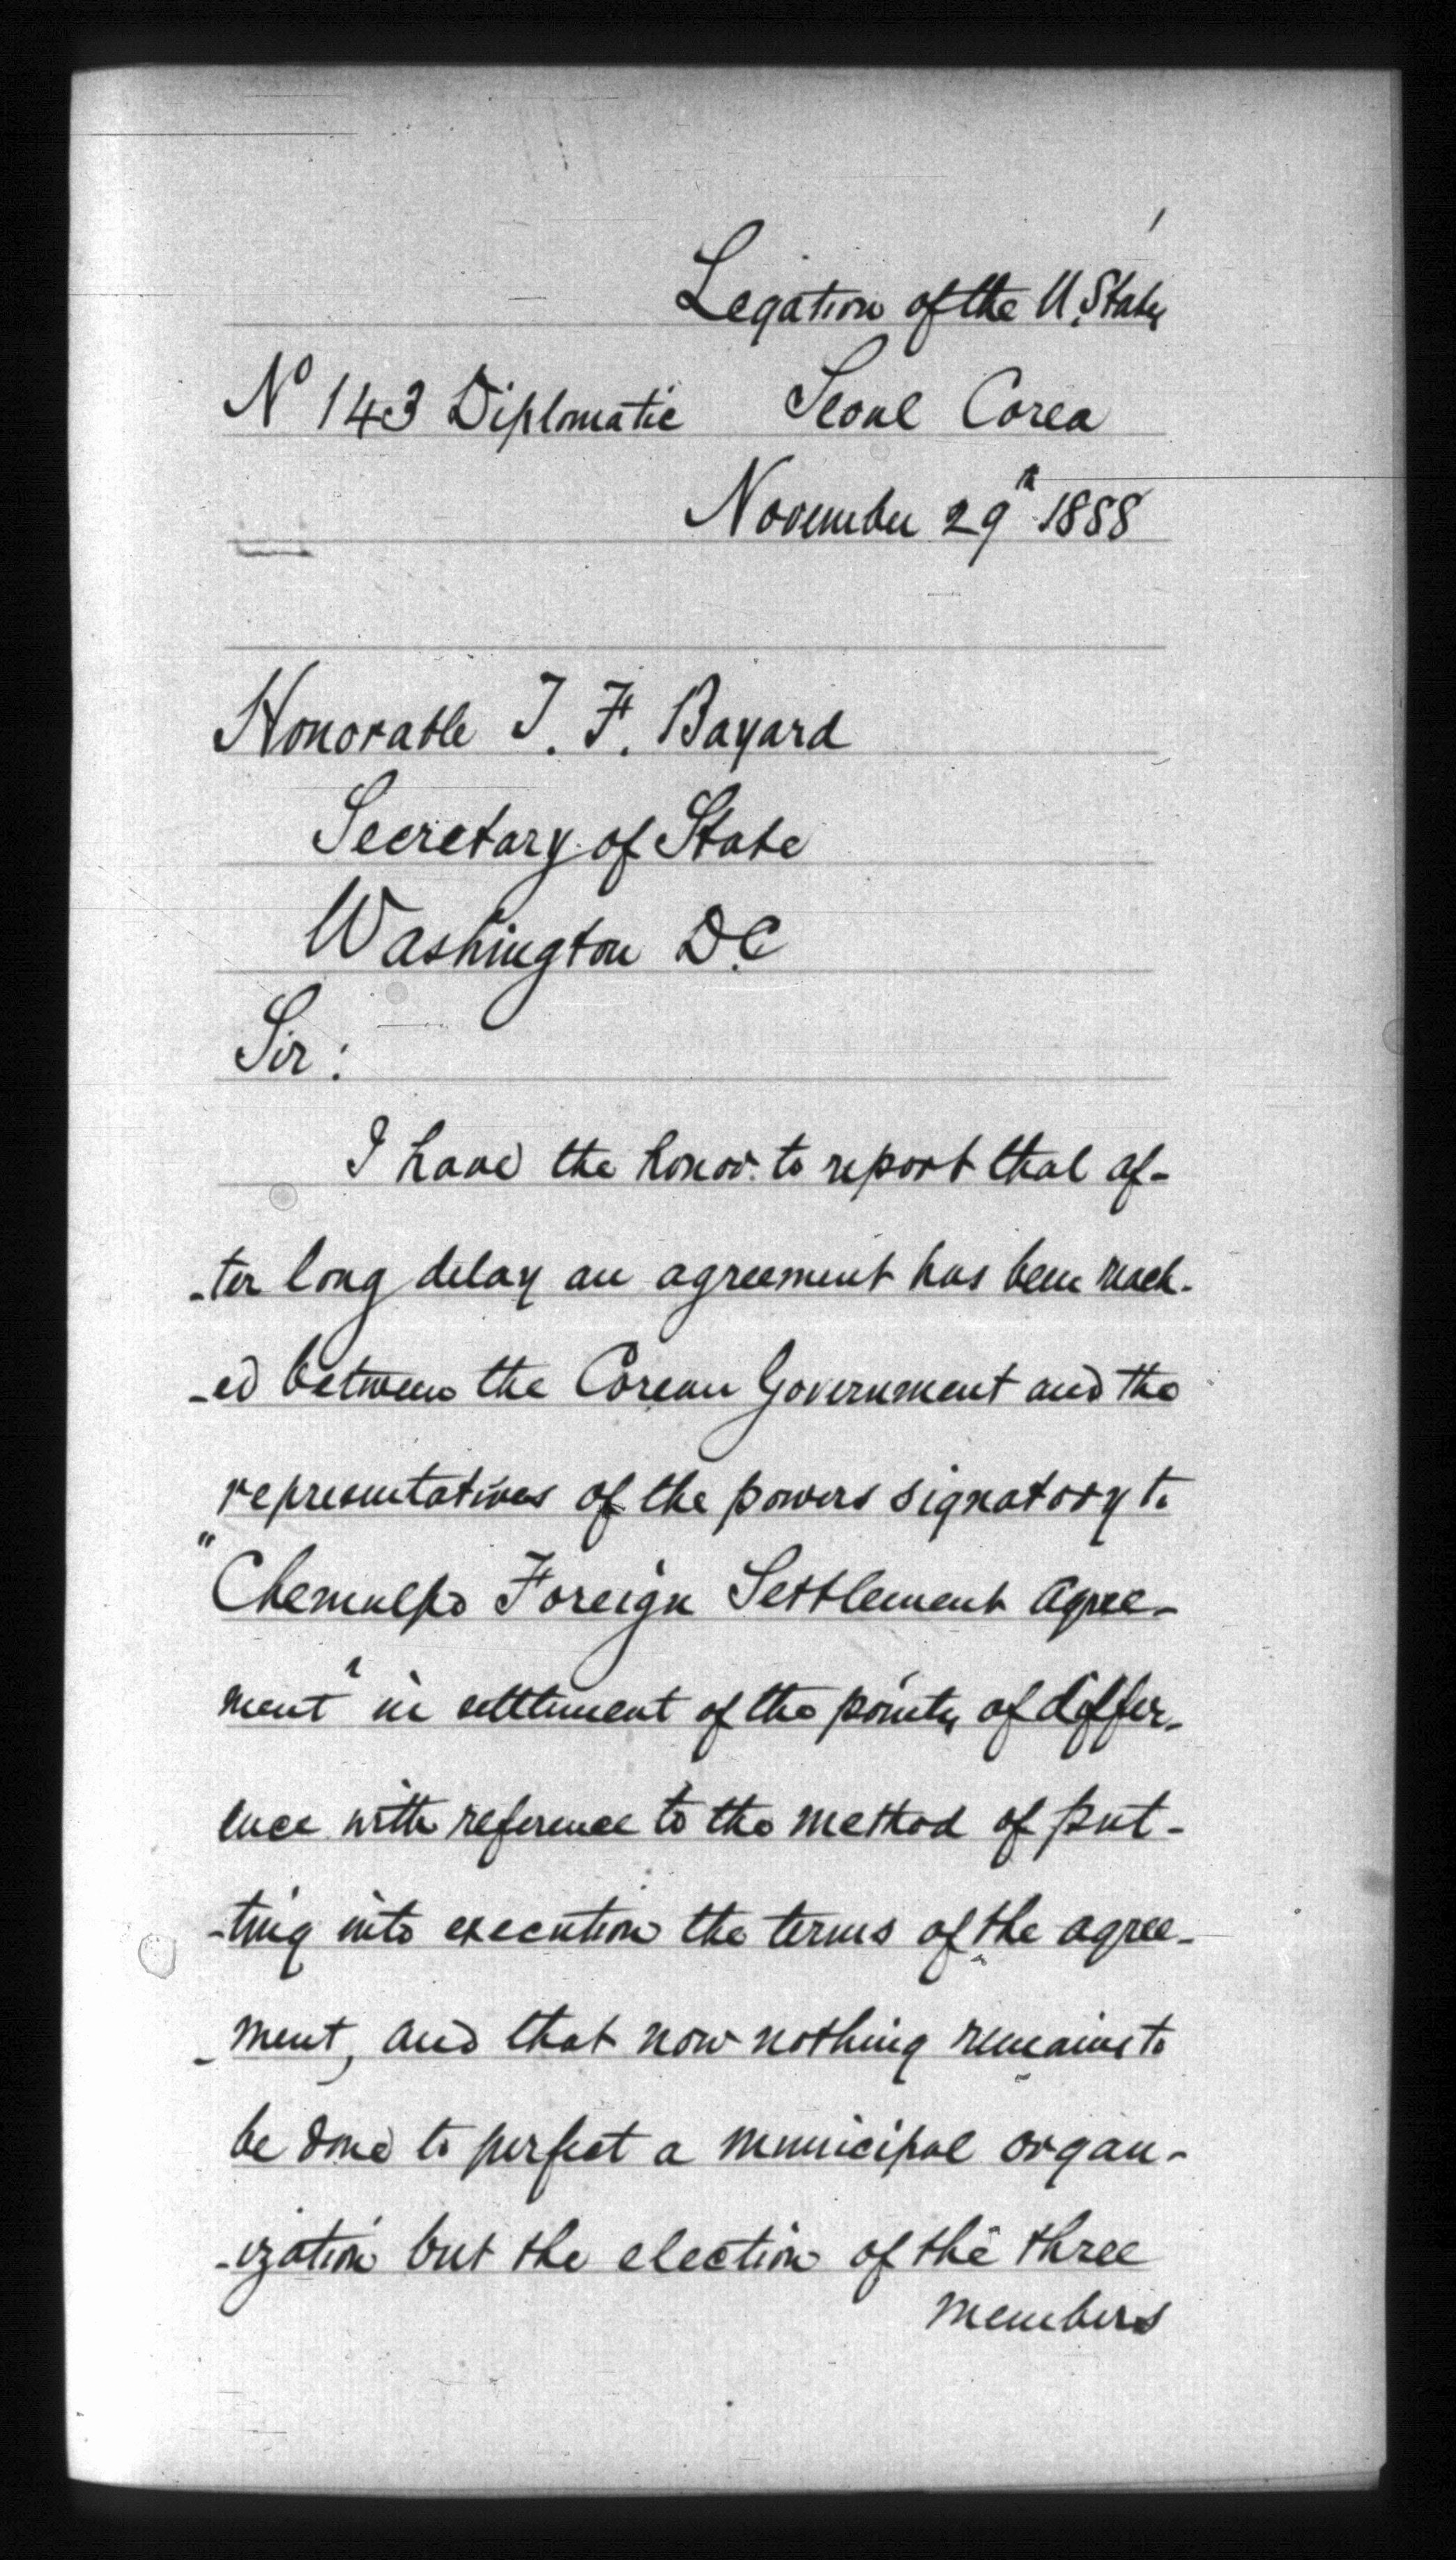 Legation of the U. States
No 143 Diplomatic Seoul Corea
November 29th 1888
Honorable T. F. Bayard
Secretary of State
Washington D.C
Sir:
I have the honor to report that af-
-ter long delay an agreement has been reach-
-ed between the Corean Government and the
representatives of the powers signatory to
"Chemulpo Foreign Settlement Agree-
ment" in settlement of the points of differ-
ence with reference to the method of put-
-ting into execution the terms of the agree-
-ment, and that now nothing remains to
be done to perfect a municipal organ-
-ization but the election of the three
members